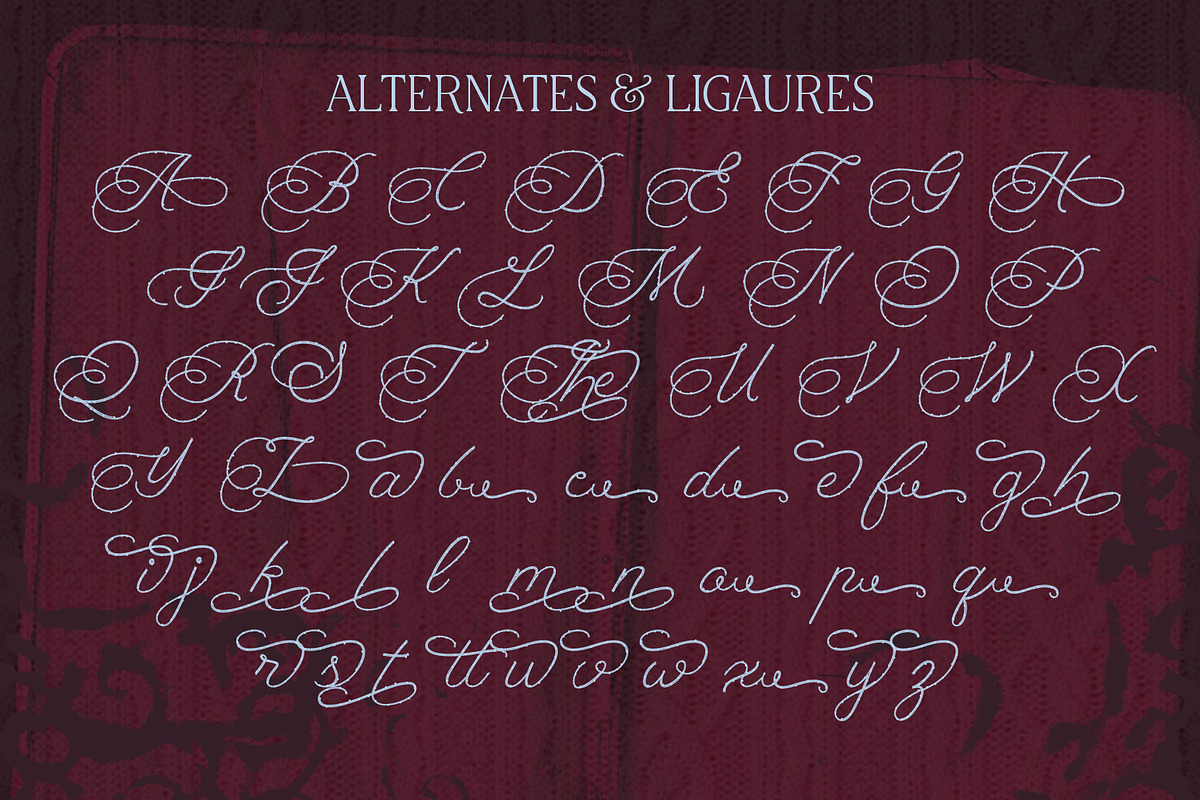 ALTERNATES & LIGAURES
A B C D E F G H
I J K L M N O P
Q R S T The U V W X
Y Z a bu cu du e fu g h
i j k l l m n ou pu qu
r s t tt u v w xu y z